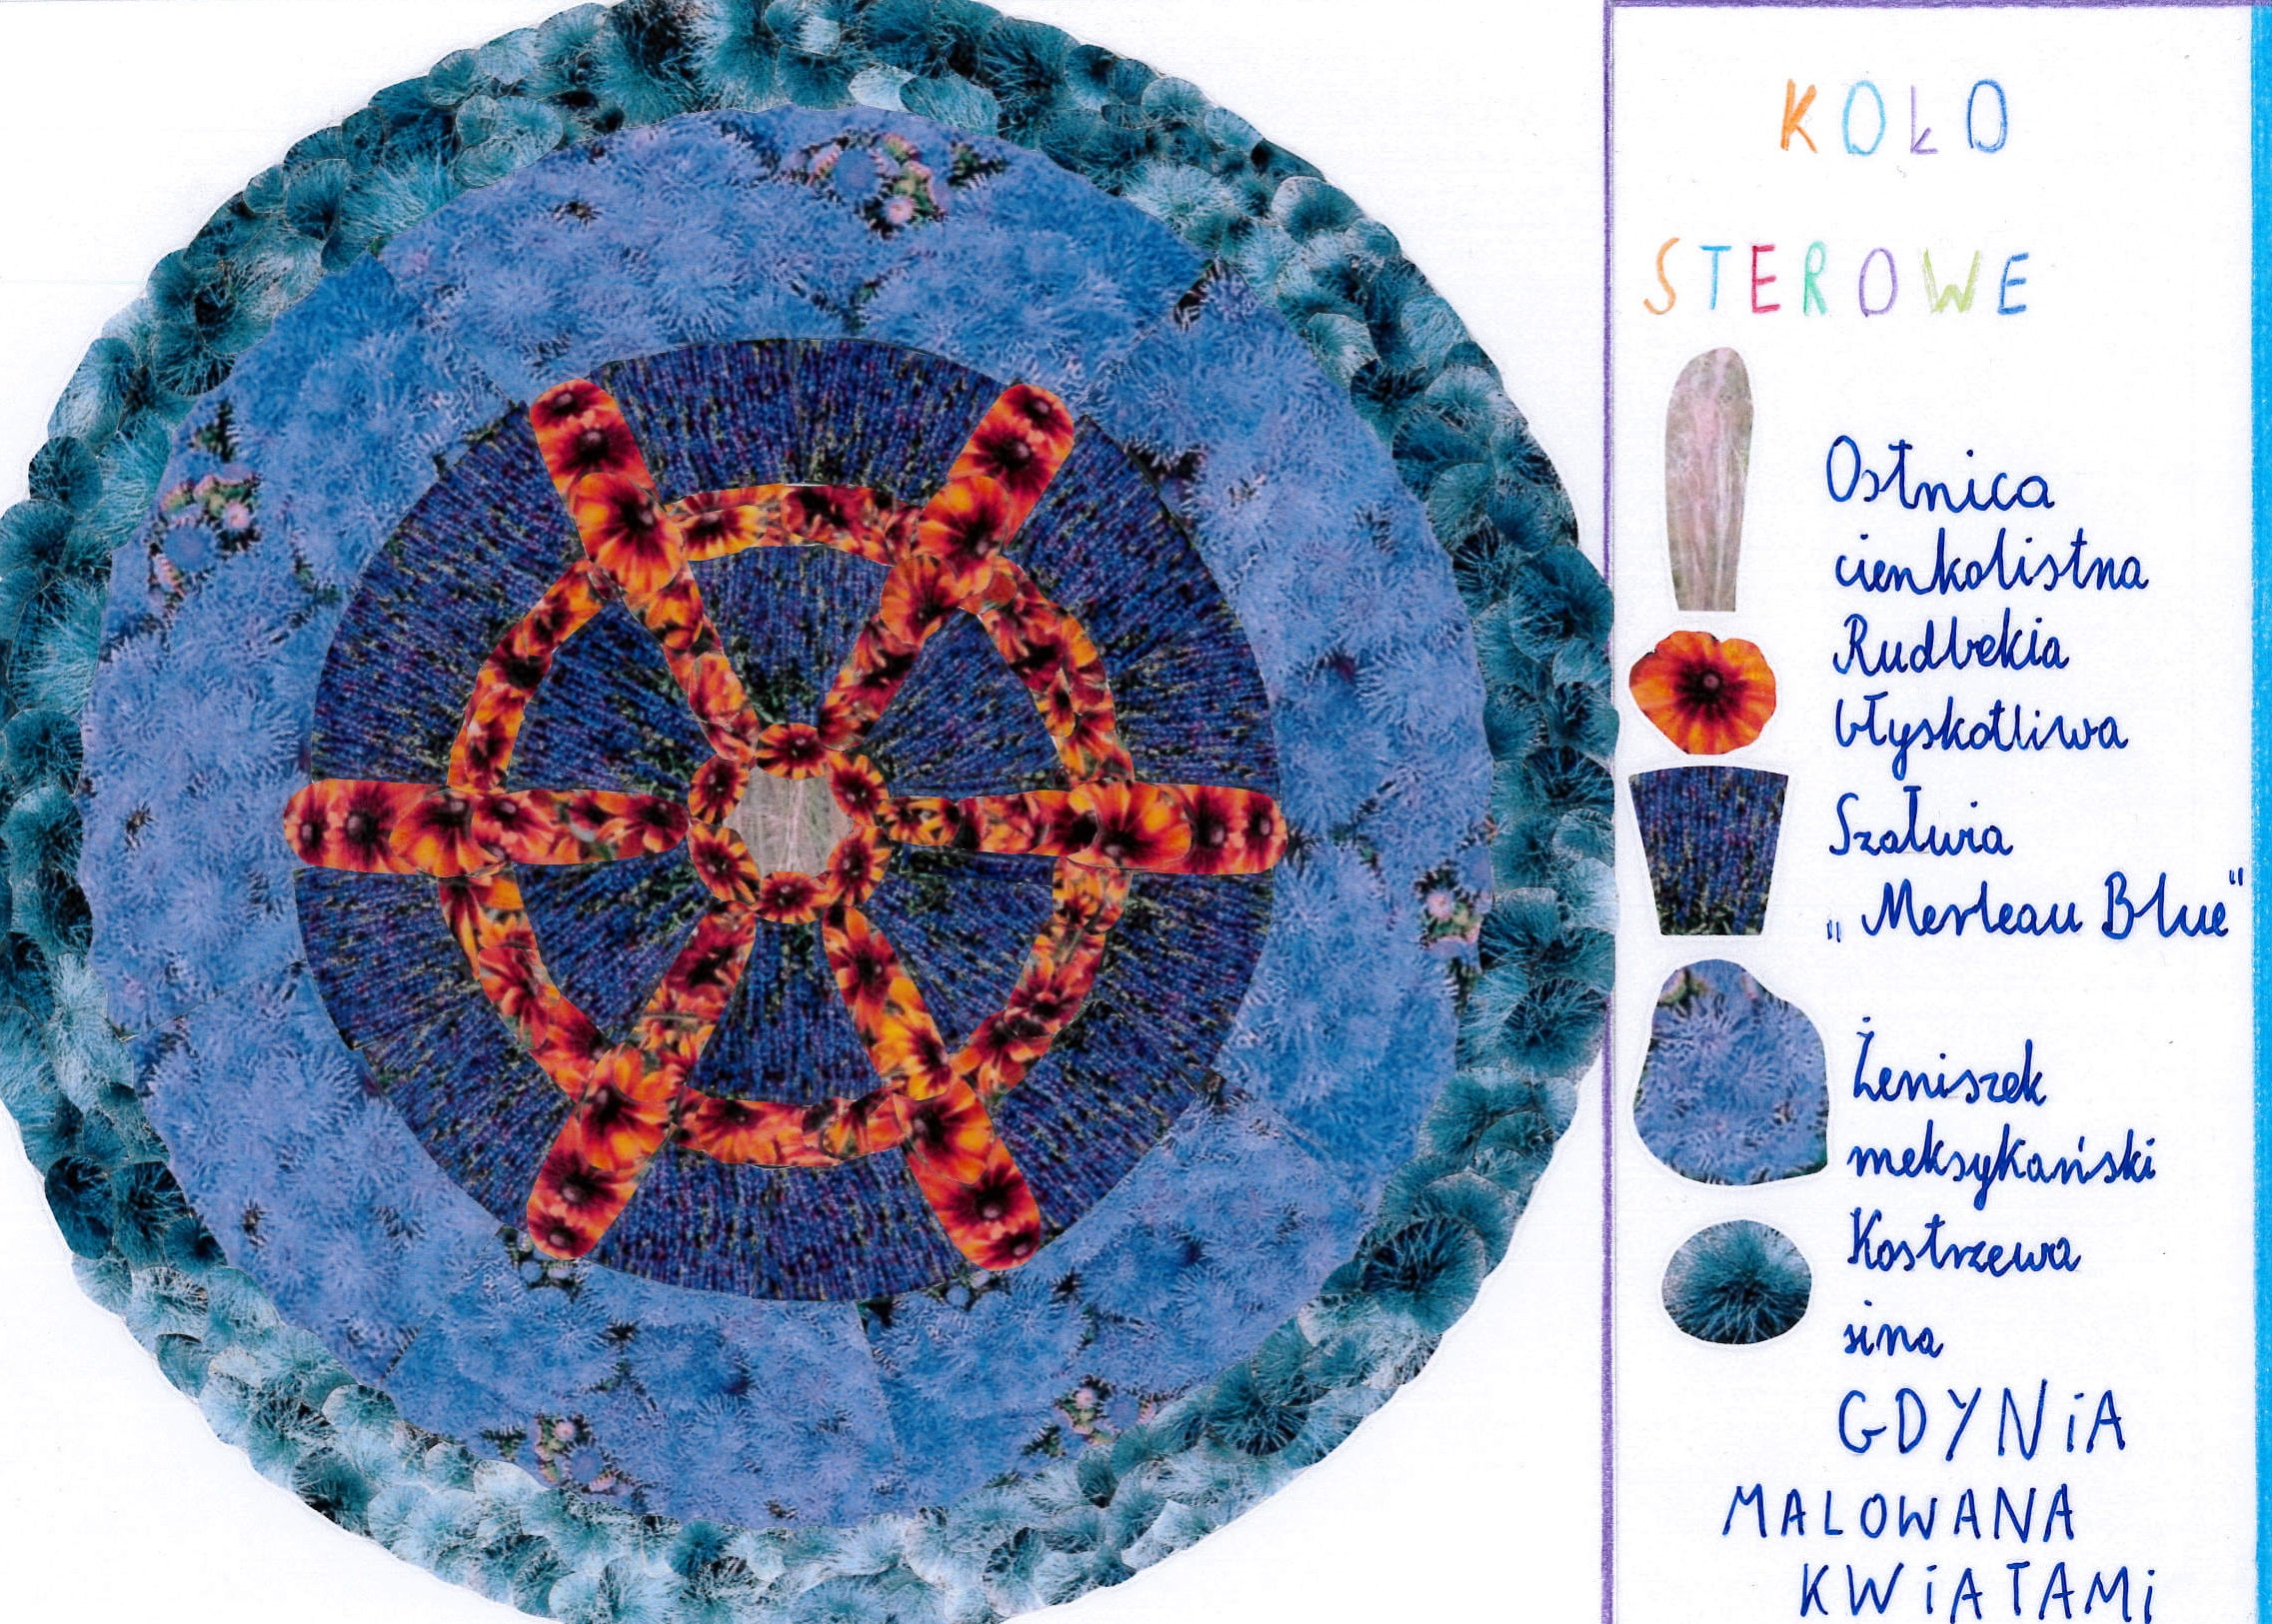 KOŁO
STEROWE
Ostnica
cienkolistna
Rudbekia
błyskotliwa
Szałwia
„Merleau Blue"
Żeniszek
meksykański
Kostrzewa
sina
GDYNiA
MALOWANA
KWiATAMi